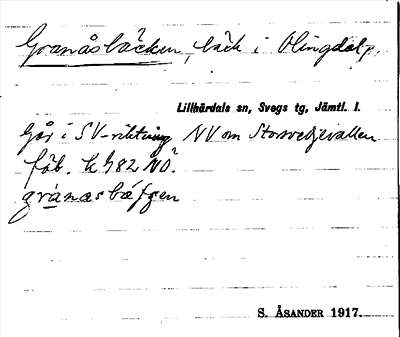 Granåsbäcken, bäck i Olingdal,
Lillhärdals sn, Svegs tg, Jämtl. l.
Går i SV-riktning NV om Storsvedjevallen
fäb. k 782 NO?
S. ÅSANDER 1917.